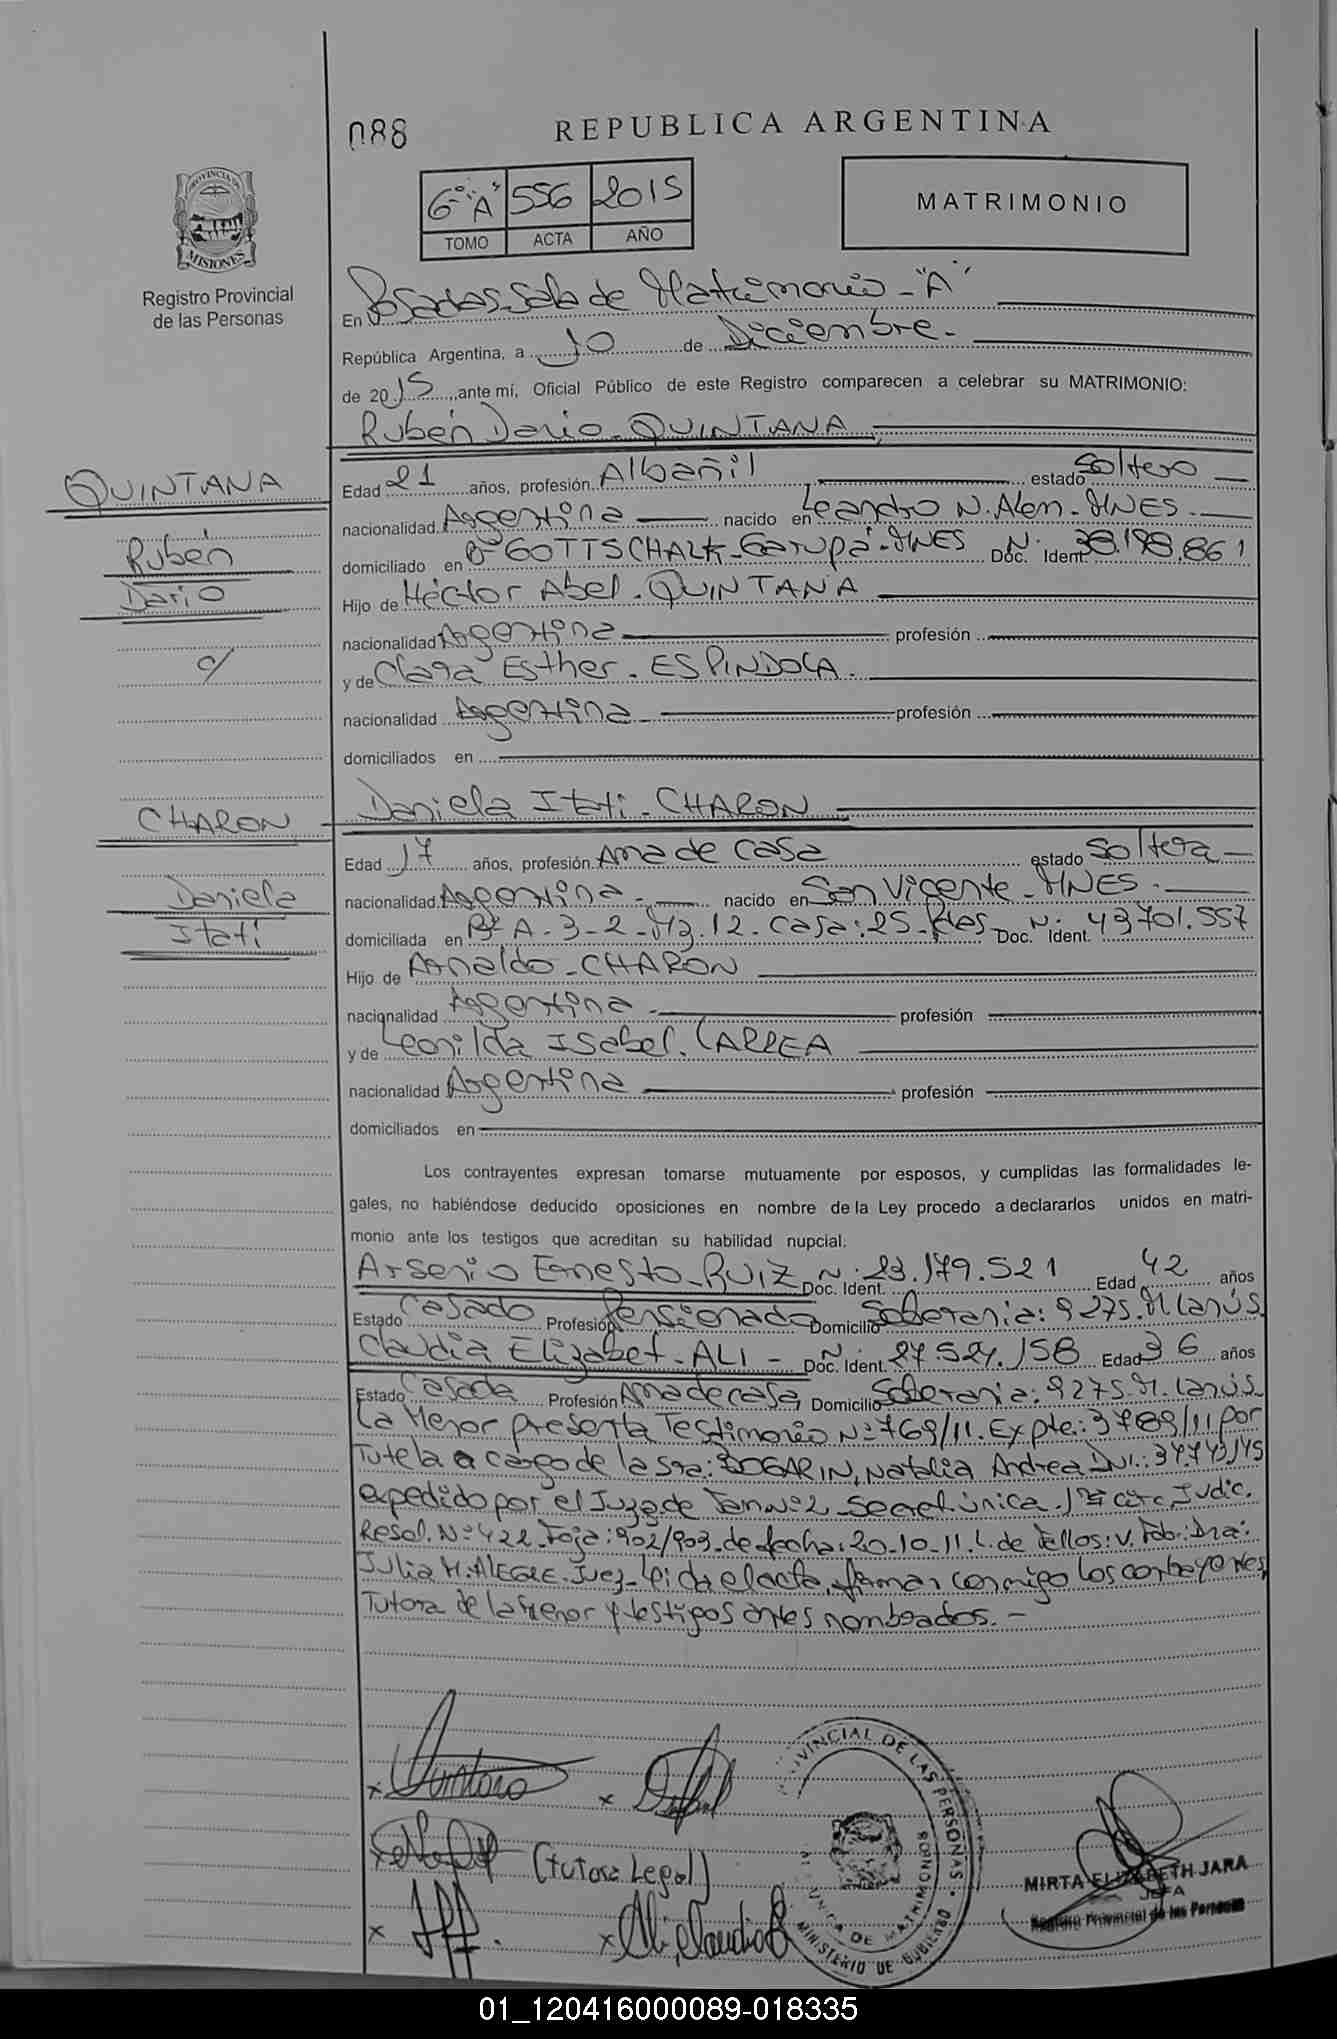 088
REPUBLICA ARGENTINA
6º "A" 556 2015
TOMO ACTA AÑO
MATRIMONIO
PROVINCIA DE MISIONES
Registro Provincial
de las Personas
En Posadas Sala de Matrimonio - "A"
República Argentina, a 10 de Diciembre.-
de 2015, ante mí, Oficial Público de este Registro comparecen a celebrar su MATRIMONIO:
Rubén Dario QUINTANA
QUINTANA
Rubén
Dario
c/
Edad 21 años, profesión Albañil estado Soltero
nacionalidad Argentina nacido en Leandro N. Alem - MNES.
domiciliado en Bº GOTTSCHALK - Garupá - MNES Doc. Ident. Nº 38.198.861
Hijo de Héctor Abel. QUINTANA
nacionalidad Argentina profesión
y de Clara Esther. ESPINDOLA.
nacionalidad Argentina profesión
domiciliados en
Daniela Itati. CHARON
CHARON
Daniela
Itatí
Edad 17 años, profesión Ama de casa estado Soltera
nacionalidad Argentina nacido en San Vicente - MNES.
domiciliada en Bº A-3-2-Mz.12. Casa: 25 - Pdas Doc. Ident. Nº 43701.557
Hijo de Arnaldo - CHARON
nacionalidad Argentina profesión
y de Leonilda Isabel. LARREA
nacionalidad Argentina profesión
domiciliados en
Los contrayentes expresan tomarse mutuamente por esposos, y cumplidas las formalidades le-
gales, no habiéndose deducido oposiciones en nombre de la Ley procedo a declararlos unidos en matri-
monio ante los testigos que acreditan su habilidad nupcial:
Arsenio Ernesto - RUIZ Doc. Ident. Nº 23.179.521 Edad 42 años
Estado Casado Profesión Pensionado Domicilio Soberania: 9275. M. Lanús.
Claudia Elizabet - ALI - Doc. Ident. Nº 27.521.158 Edad 36 años
Estado Casada Profesión Ama de casa Domicilio Soberania: 9275. M. Lanús
La Menor presenta Testimonio Nº 769/11. Expte: 3789/11 por
Tutela a cargo de la sra: BOGARIN, Natalia Andrea DNI.: 34.743145
expedido por el Juzg. de Fam Nº 2 - Secret. única. 1ra circ. Judic.
Resol. Nº 422. Foja: 902/903 - de fecha: 20-10-11. L. de Fallos: V. Fdo: Dra.
Julia M. ALEGRE. Juez - Leída el acta, firman conmigo los contrayentes,
Tutora de la menor y testigos antes nombrados. -
(tutora Legal)
Ali, Claudia E
PROVINCIAL DE LAS PERSONAS
DE MATRIMONIOS
MINISTERIO DE GOBIERNO
MIRTA ELIZABETH JARA
JEFA
Registro Provincial de las Personas
01_120416000089-018335